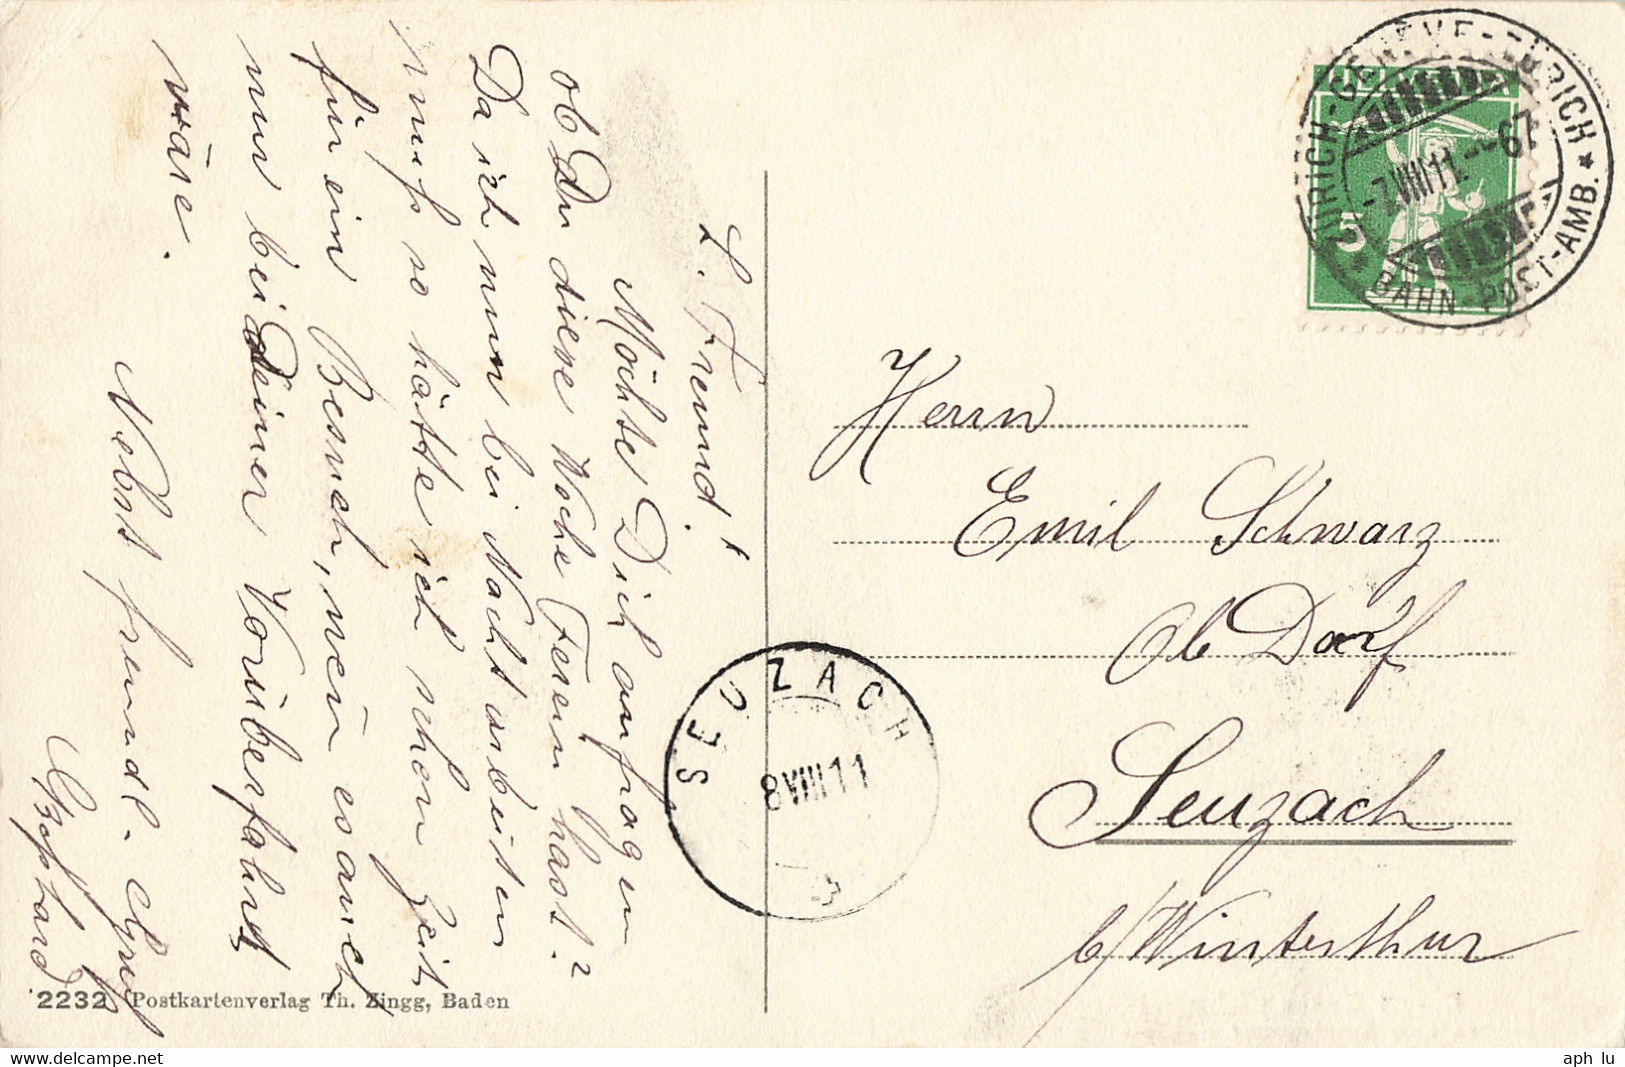 L. Freund!
Möchte Dich anfragen
ob Du diese Woche Ferien hast?
Da ich nun bei Nacht arbeiten
muss so hätte ich schon Zeit
für ein Besuch, wen es auch
nur bei Deiner Vorüberfahrt
wäre.
Nebst freundl. Gruss
Gebhard
2232 Postkartenverlag Th. Zingg, Baden
HELVETIA
5
ZÜRICH-GENÈVE-ZÜRICH
-7.VIII 11.-67
BAHN-POST-AMB.
Herrn
Emil Schwarz
Ob Dorf
Seuzach
b/Winterthur
SEUZACH
8 VIII 11
www.delcampe.net
aph lu